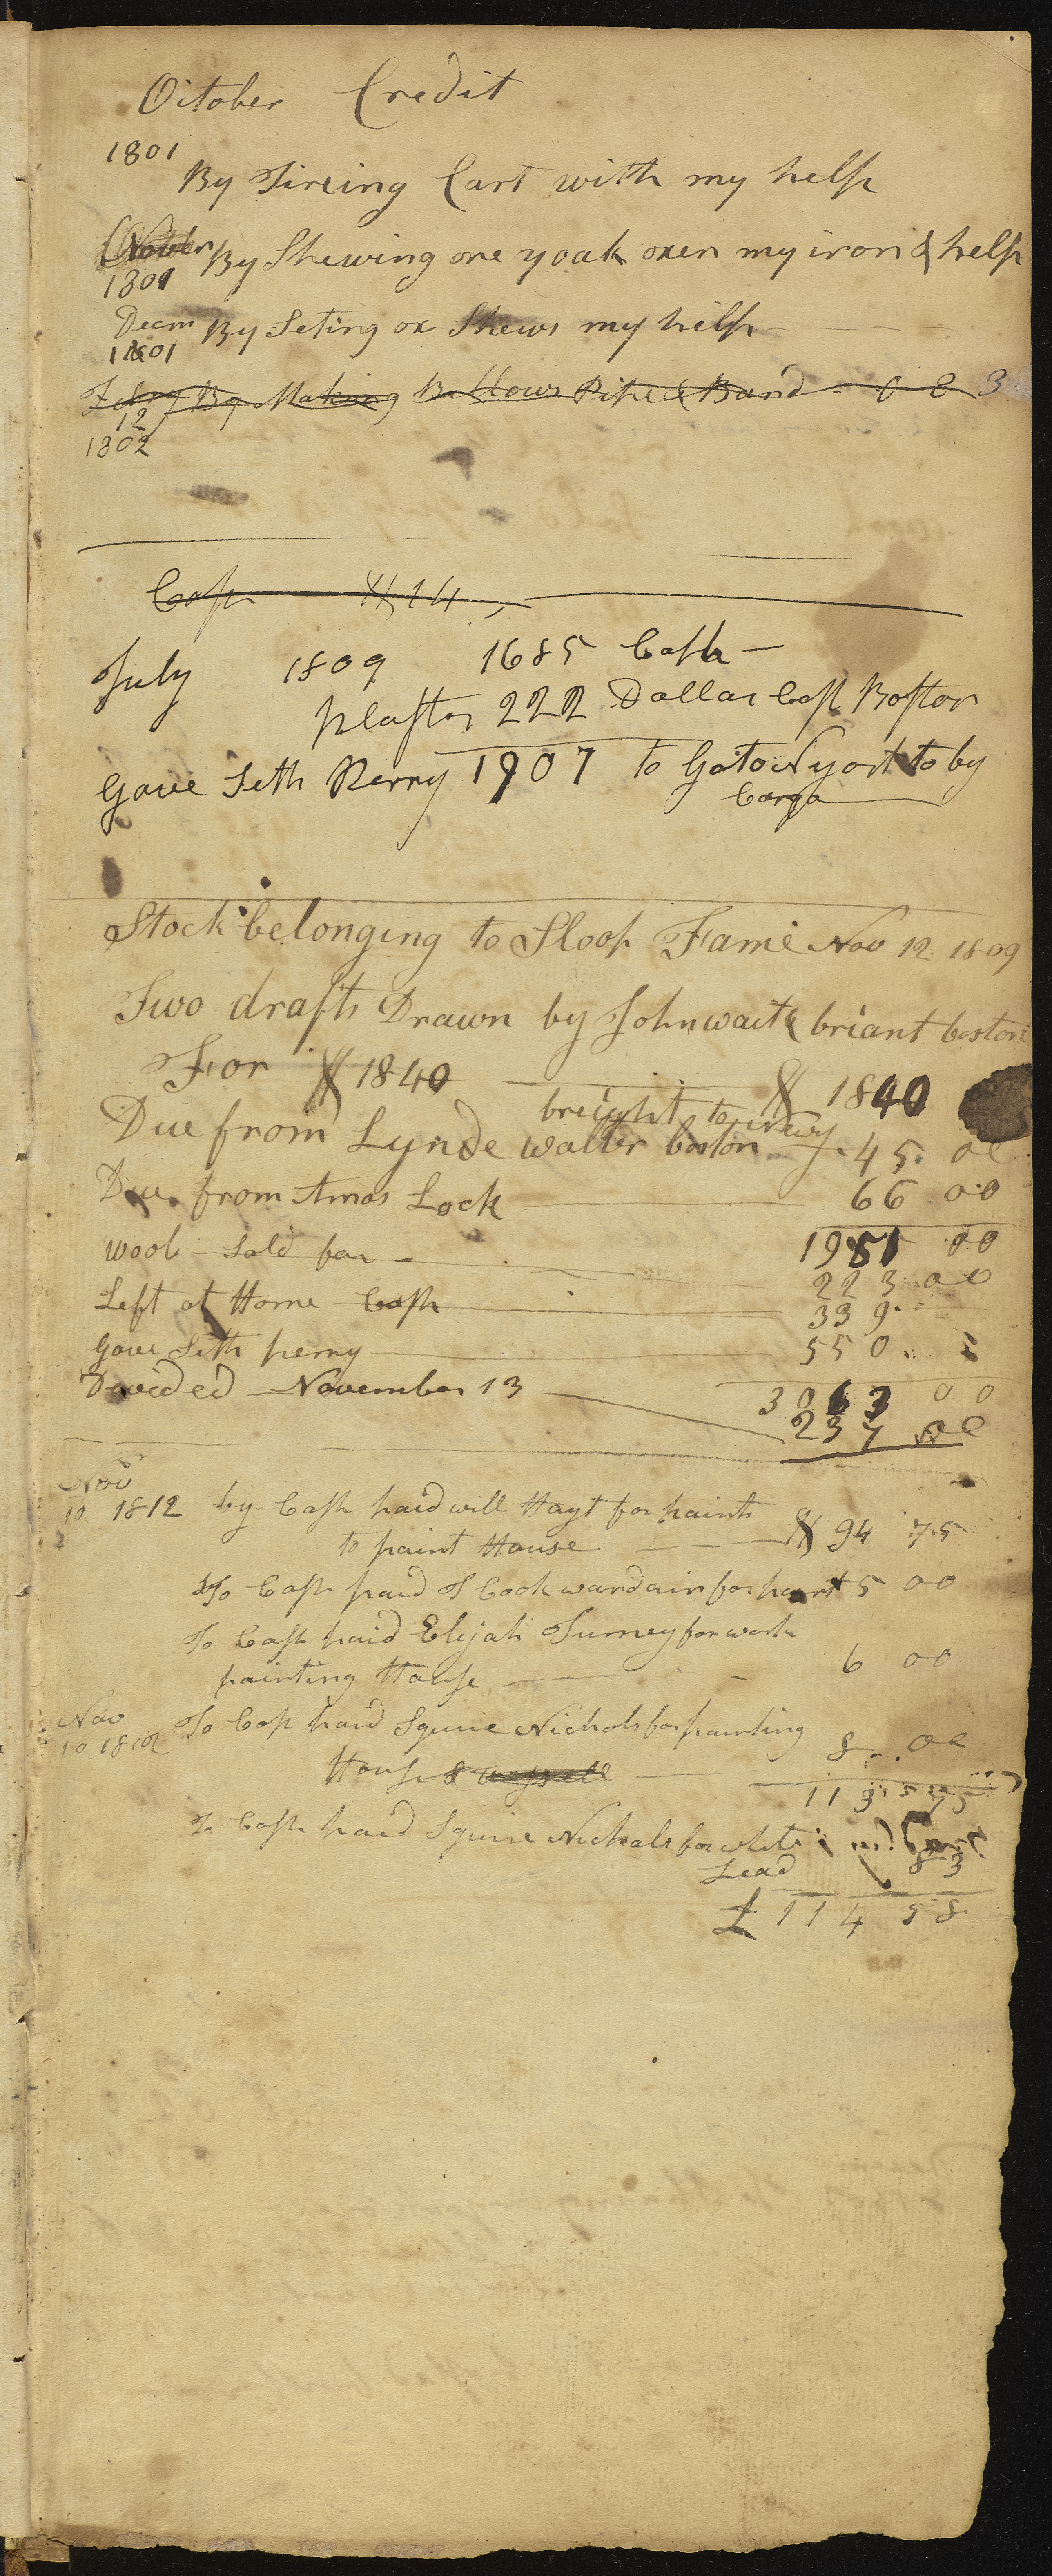 Oitober Credit
1801
By Tireing Cart with my help
By Shewing one yoak oxen my iron & help
1801
Decm By Seting ox Shews my help
1801
Febry By Making Bellows Pipe & Band - 0 8 3
12
1802
Cash $14
July 1809 1685 Cash
plaster 222 Dollar Cost Boston
Gave Seth Perry 1907 to Go to Nyork to by
Cargo
Stock belonging to Sloop Fame Nov 12 1809
Two drafts Drawn by John wait & briant boston
For $1840 $ 1840
Due from Lynde walter boston 45 00
Due from Amos Lock 66 00
1951 00
wool Sold for 223 00
Left at Home Cash 339
Gave Seth perry 550
Deveded November 13 3063 00
237 00
Nov
10 1812 by Cash paid will Hayt for paints
to paint House $ 94 75
To Cash paid J Cook wardain for paint 5 00
To Cash paid Elijah Turney for work
painting House 6 00
Nov To Cash paid Squire Nichols for painting
10 1812 8 00
House & vessell
113 75
To Cash paid Squire Nichols for white
Lead 83
£ 114 58